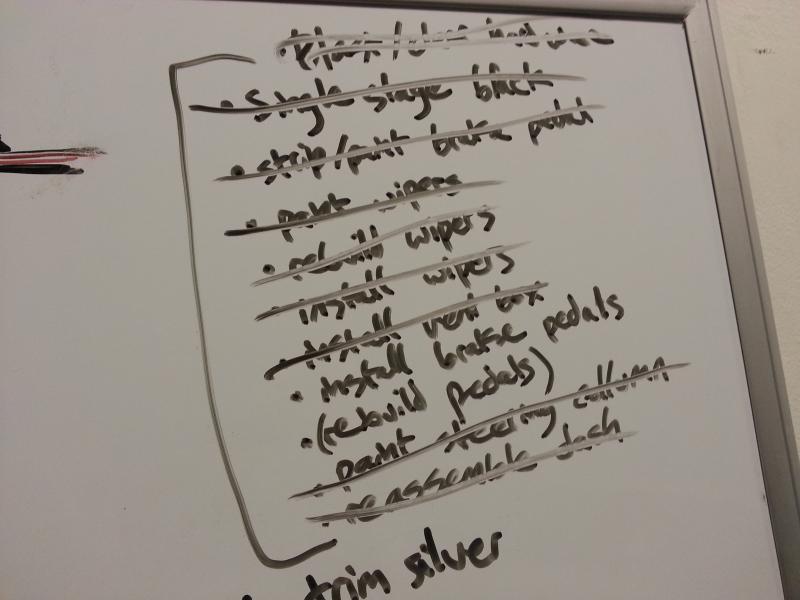 Black / clear hardware
• Single stage black
• strip/paint brake pedal
• paint wipers
• rebuild wipers
• install wipers
• install vent box
• install brake pedals
• (rebuild pedals)
• paint steering collumn
• reassemble dash
trim silver